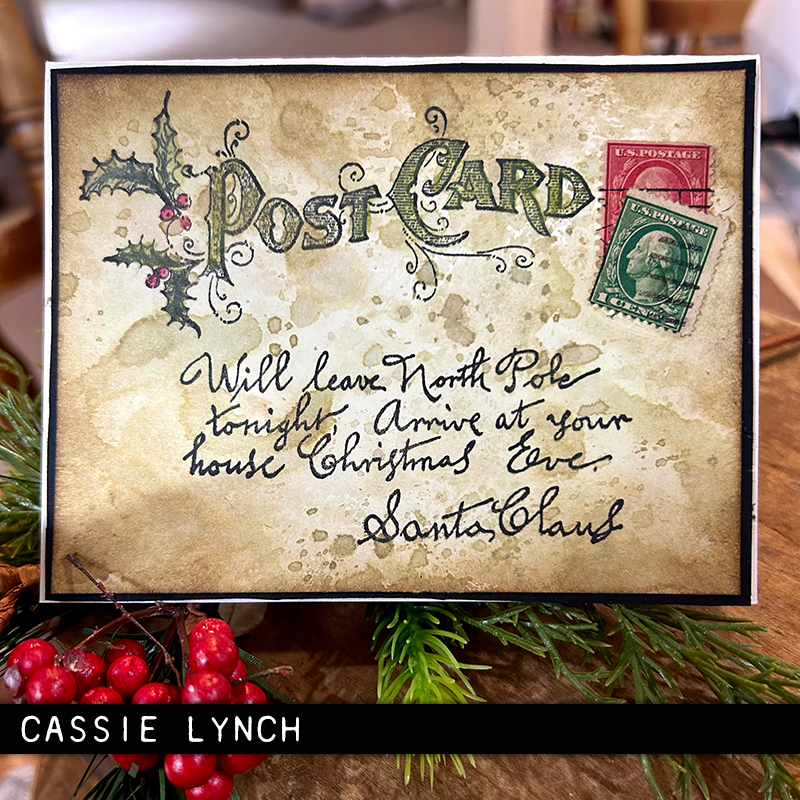 POST CARD
U.S. POSTAGE
U.S. POSTAGE
1 CENT 1
Will leave North Pole
tonight, Arrive at your
house Christmas Eve.
Santa Claus
CASSIE LYNCH